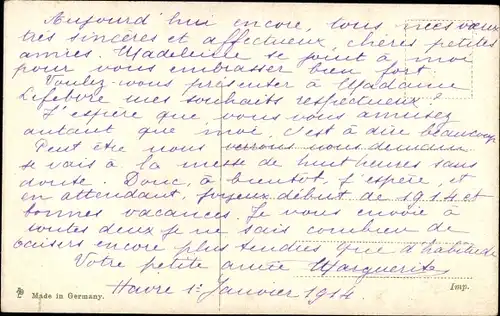 Aujourd'hui encore, tous mes vœux
très sincères et affectueux, chères petites
amies. Madeleine se joint à moi
pour vous embrasser bien fort.
Voulez-vous présenter à Madame
Lefebvre mes souhaits respectueux?
J'espère que vous vous amusez
autant que moi. C'est à dire beaucoup
Peut être nous verrons nous demain
je vais à la messe de huit heures sans
doute. Donc, à bientôt, j'espère, et
en attendant, joyeux début de 1914 et
bonnes vacances. Je vous envoie à
toutes deux je ne sais combien de
baisers encore plus tendres que d'habitude
Votre petite amie Marguerite
Havre 1er Janvier 1914.
Made in Germany.
Imp.